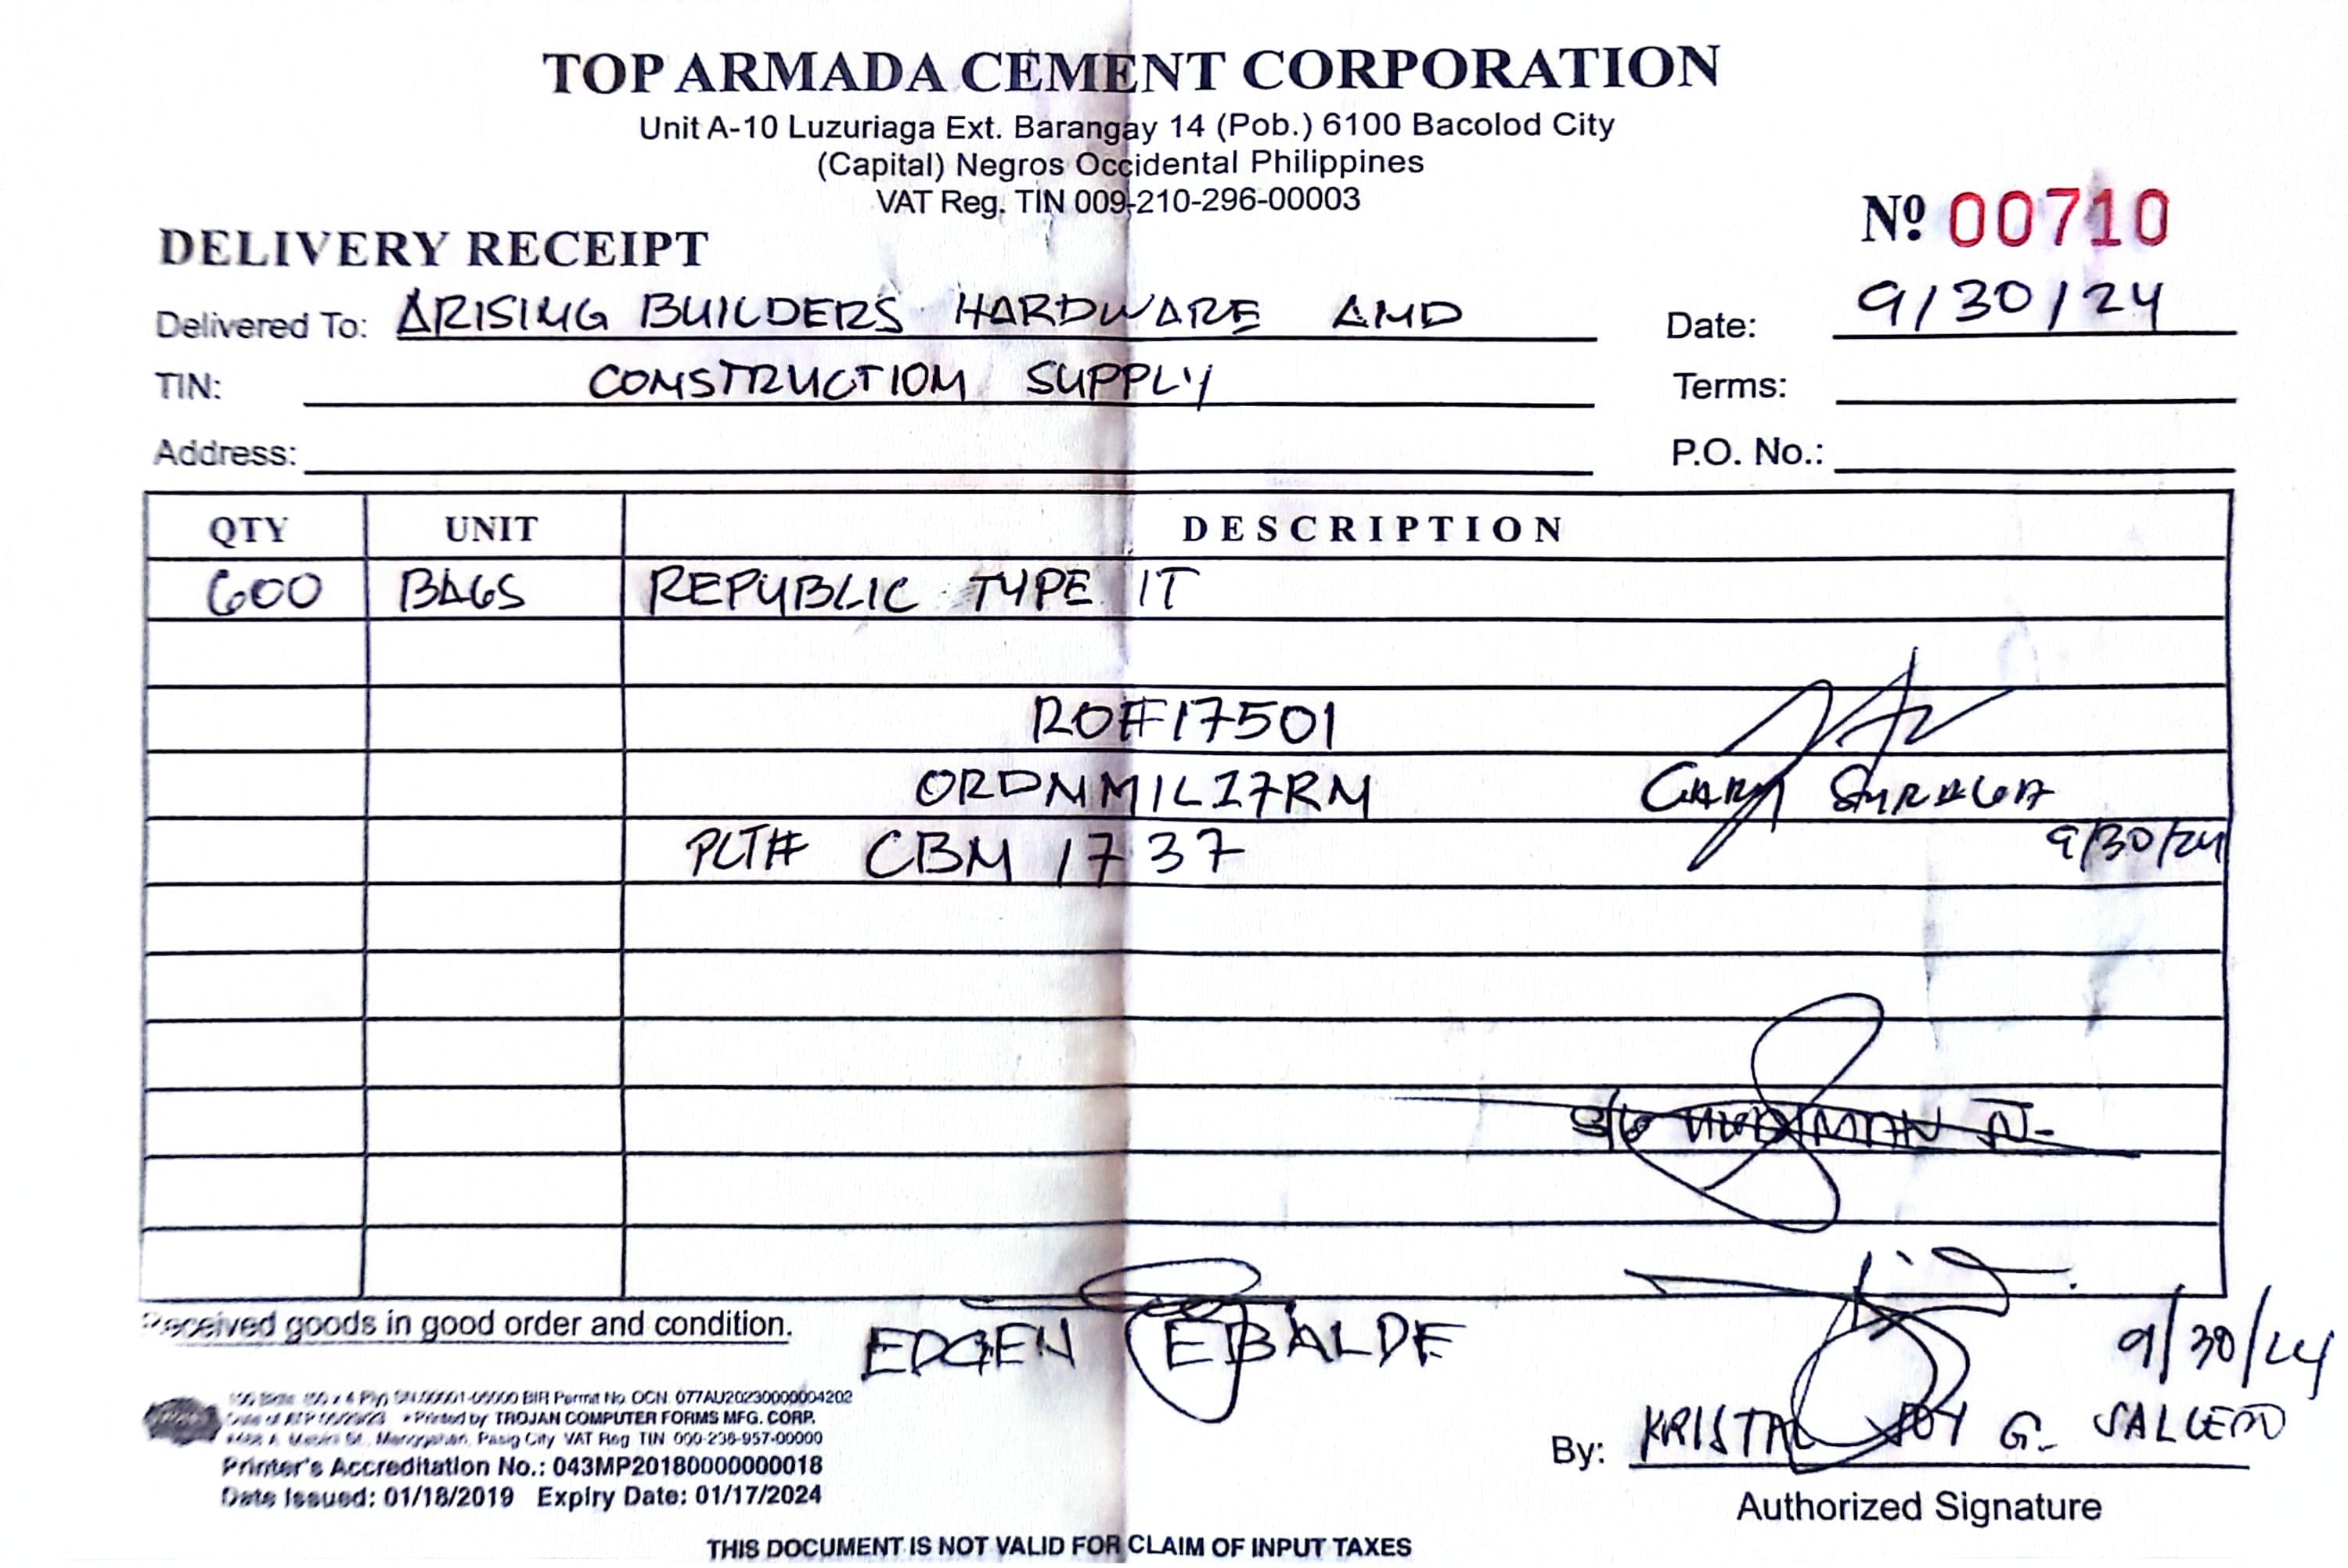 TOP ARMADA CEMENT CORPORATION
Unit A-10 Luzuriaga Ext. Barangay 14 (Pob.) 6100 Bacolod City
(Capital) Negros Occidental Philippines
VAT Reg. TIN 009-210-296-00003
Nº 00710
DELIVERY RECEIPT
Delivered To: ARISING BUILDERS HARDWARE AND Date: 9/30/24
TIN: CONSTRUCTION SUPPLY Terms:
Address: P.O. No.:
QTY UNIT DESCRIPTION
600 BAGS REPUBLIC TYPE IT
RO#17501
ORDNMIL17RM GARY
PLT# CBM 1737 9/30/24
Received goods in good order and condition. EDGEN EBALDE 9/30/24
BIR Permit No. OCN 077AU20230000004202
Printed by TROJAN COMPUTER FORMS MFG. CORP.
Pasig City VAT Reg TIN 000-238-957-00000
Printer's Accreditation No.: 043MP20180000000018
Date Issued: 01/18/2019 Expiry Date: 01/17/2024
By: KRISTAL JOY G. SALCEDO
Authorized Signature
THIS DOCUMENT IS NOT VALID FOR CLAIM OF INPUT TAXES